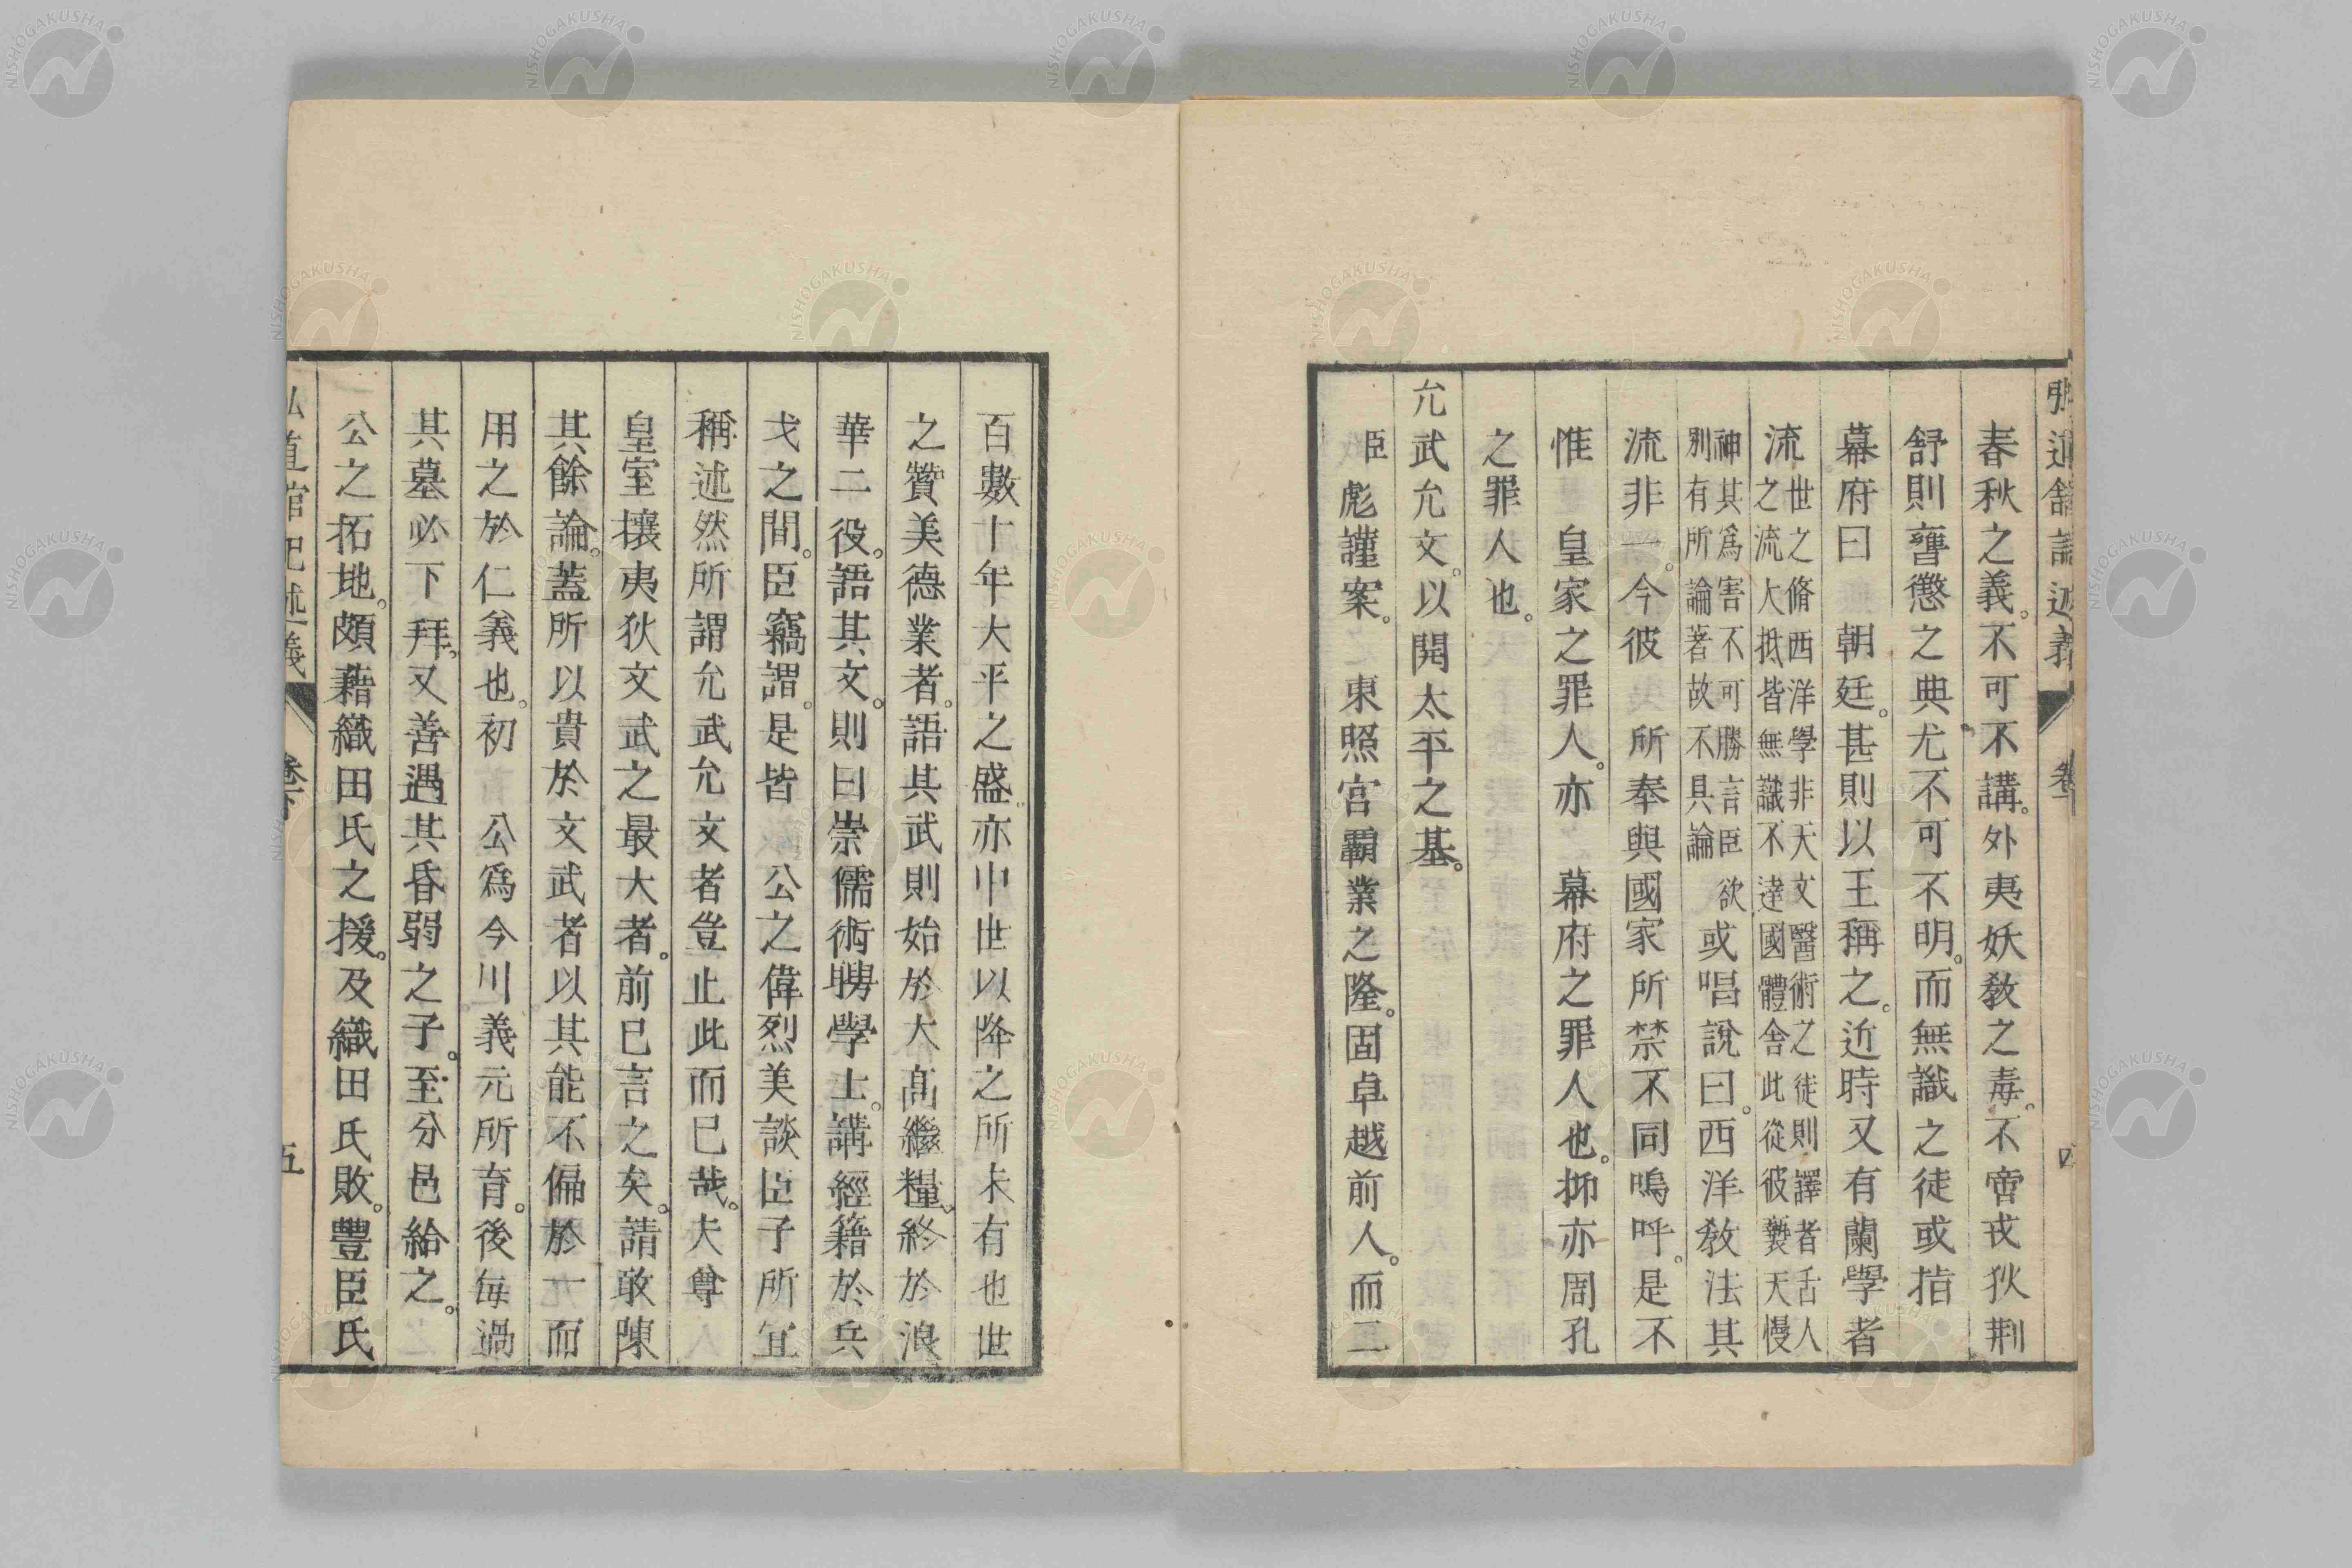 弘道館記述義
卷下
四
春秋之義。不可不講。外夷妖教之毒。不啻戎狄荆
舒則膺懲之典尤不可不明。而無識之徒或指
幕府曰 朝廷。甚則以王稱之。近時又有蘭學者
流世之脩西洋學非天文醫術之徒則譯者舌人
之流大抵皆無識不達國體舍此從彼褻天慢
神其爲害不可勝言臣欲
別有所論著故不具論
或唱說曰。西洋教法其
流非一。今彼 所奉與國家所禁不同嗚呼。是不
惟 皇家之罪人。亦 幕府之罪人也。抑亦周孔
之罪人也。
允武允文。以開太平之基。
臣彪謹案。 東照宮霸業之隆。固卓越前人。而二
百數十年大平之盛。亦中世以降之所未有也世
之贊美德業者。語其武則始於大高繼糧。終於浪
華二役。語其文。則曰崇儒術聘學士。講經籍於兵
戈之間。臣竊謂。是皆 公之偉烈美談臣子所宜
稱述然所謂允武允文者豈止此而已哉。夫尊
皇室攘夷狄文武之最大者。前已言之矣。請敢陳
其餘論。蓋所以貴於文武者以其能不偏於一而
用之於仁義也。初 公爲今川義元所育。後每過
其墓必下拜。又善遇其昏弱之子。至分邑給之。
公之拓地。頗藉織田氏之援。及織田氏敗。豐臣氏
弘道館記述義
卷下
五
NISHOGAKUSHA